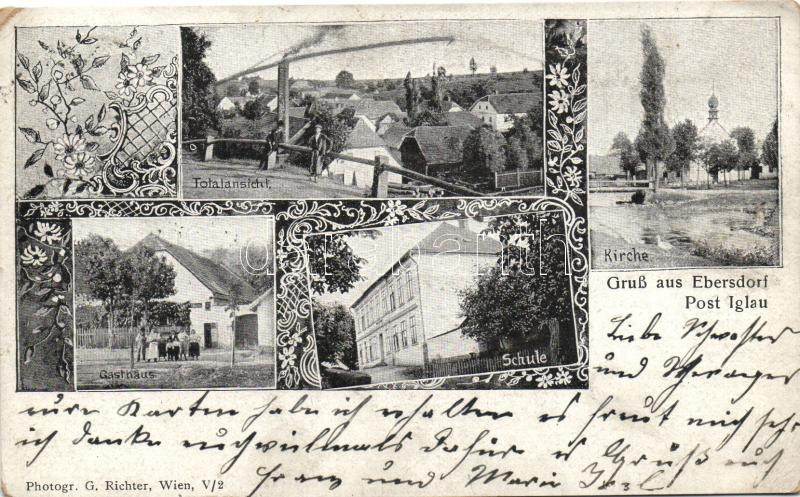 Totalansicht.
Kirche
Gruß aus Ebersdorf
Post Iglau
Gasthaus
Schule
Liebe Schwester
und Schwager
eure Karten habe ich erhalten es freut mich sehr
ich danke euch vielmals dafür es Grüßt euch
Franz und Marie
Photogr. G. Richter, Wien, V/2
darabanth